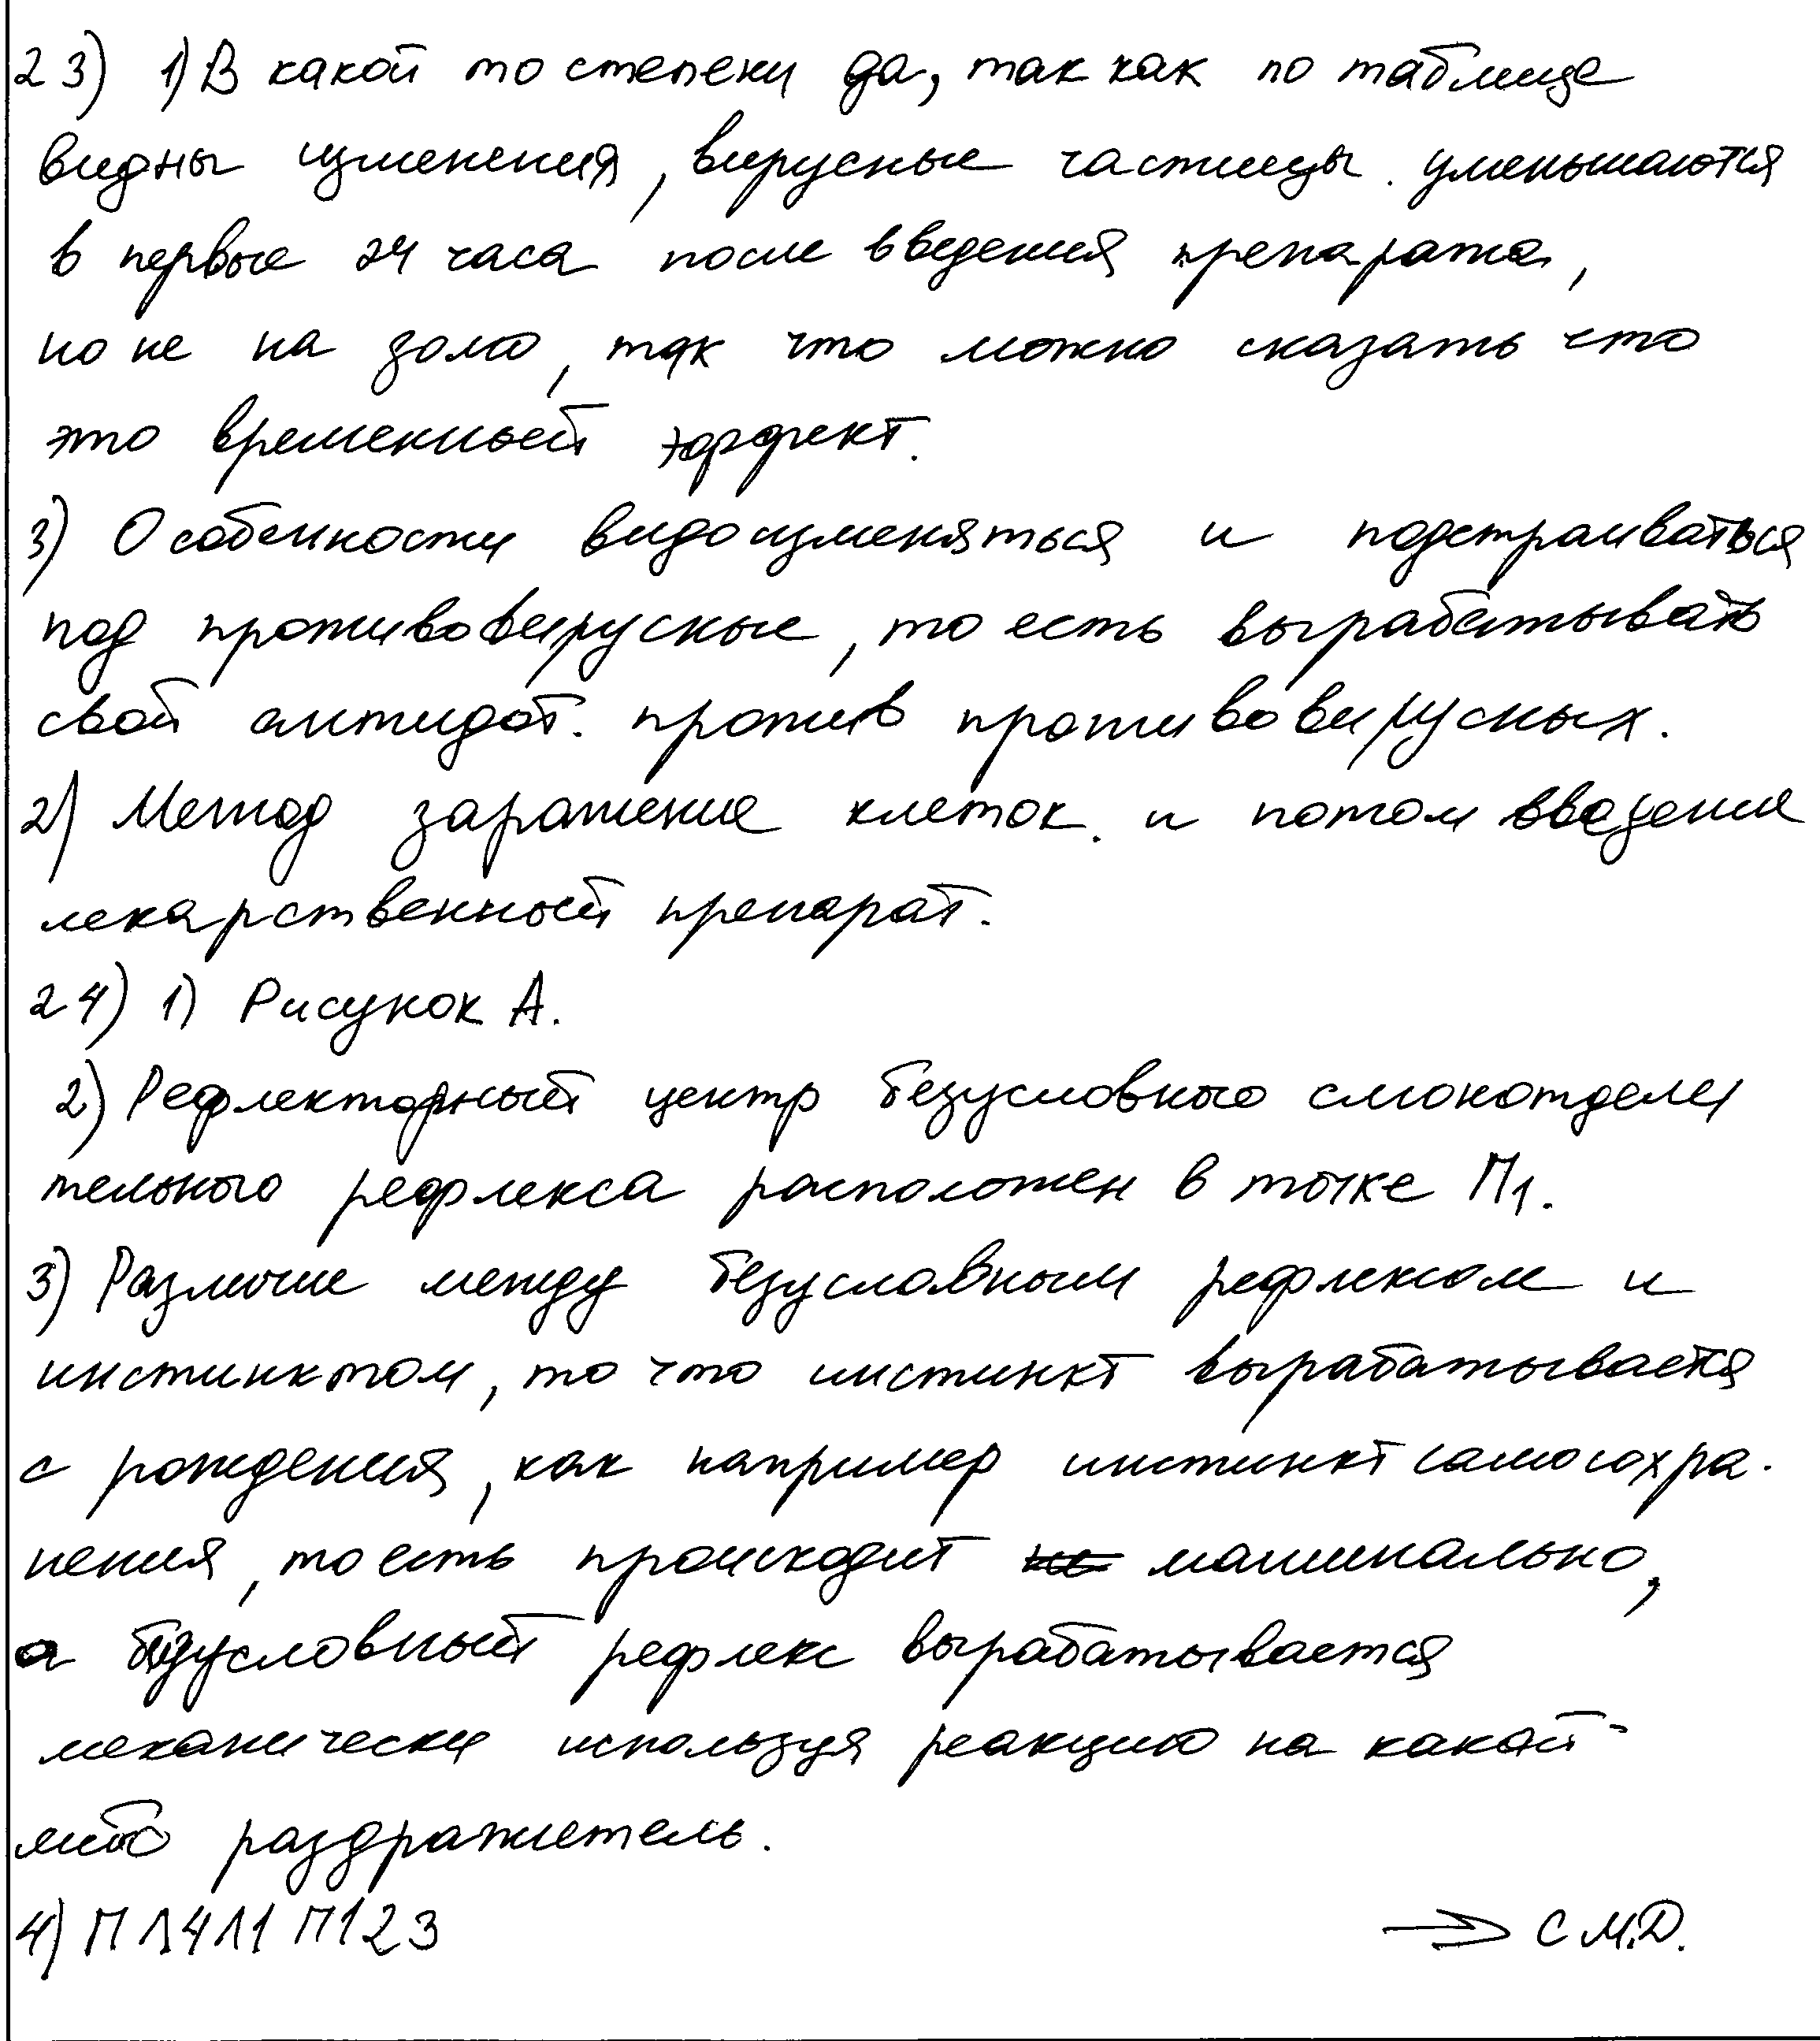 23) 1) В какой то степени да, так как по таблице
видны изменения, вирусные частицы. уменьшаются
в первые 24 часа после введения препарата,
но не на долго, так что можно сказать что
это временный эффект.
3) Особенности видоизменяться и подстраиваться
под противовирусные, то есть вырабатывать
свой антидот. против противовирусных.
2) Метод заражение клеток. и потом введение
лекарственный препарат.
24) 1) Рисунок А.
2) Рефлекторный центр безусловного слюноотделе
тельного рефлекса расположен в точке П1.
3) Различие между безусловным рефлексом и
инстинктом, то что инстинкт вырабатывается
с рождения, как например инстинкт самосохра-
нения, то есть происходит машинально,
а безусловный рефлекс вырабатывается
механически используя реакцию на какой-
либо раздражитель.
4) П Л4Л1 П123
→ С М.Д.